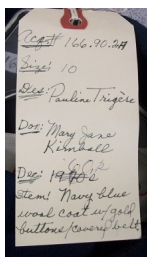 Acq# 166.90.24
Size: 10
Des: Pauline Trigère
Don: Mary Jane
Kimball
60s
Dec:
Item: Navy blue
wool coat w/ gold
buttons/covered belt